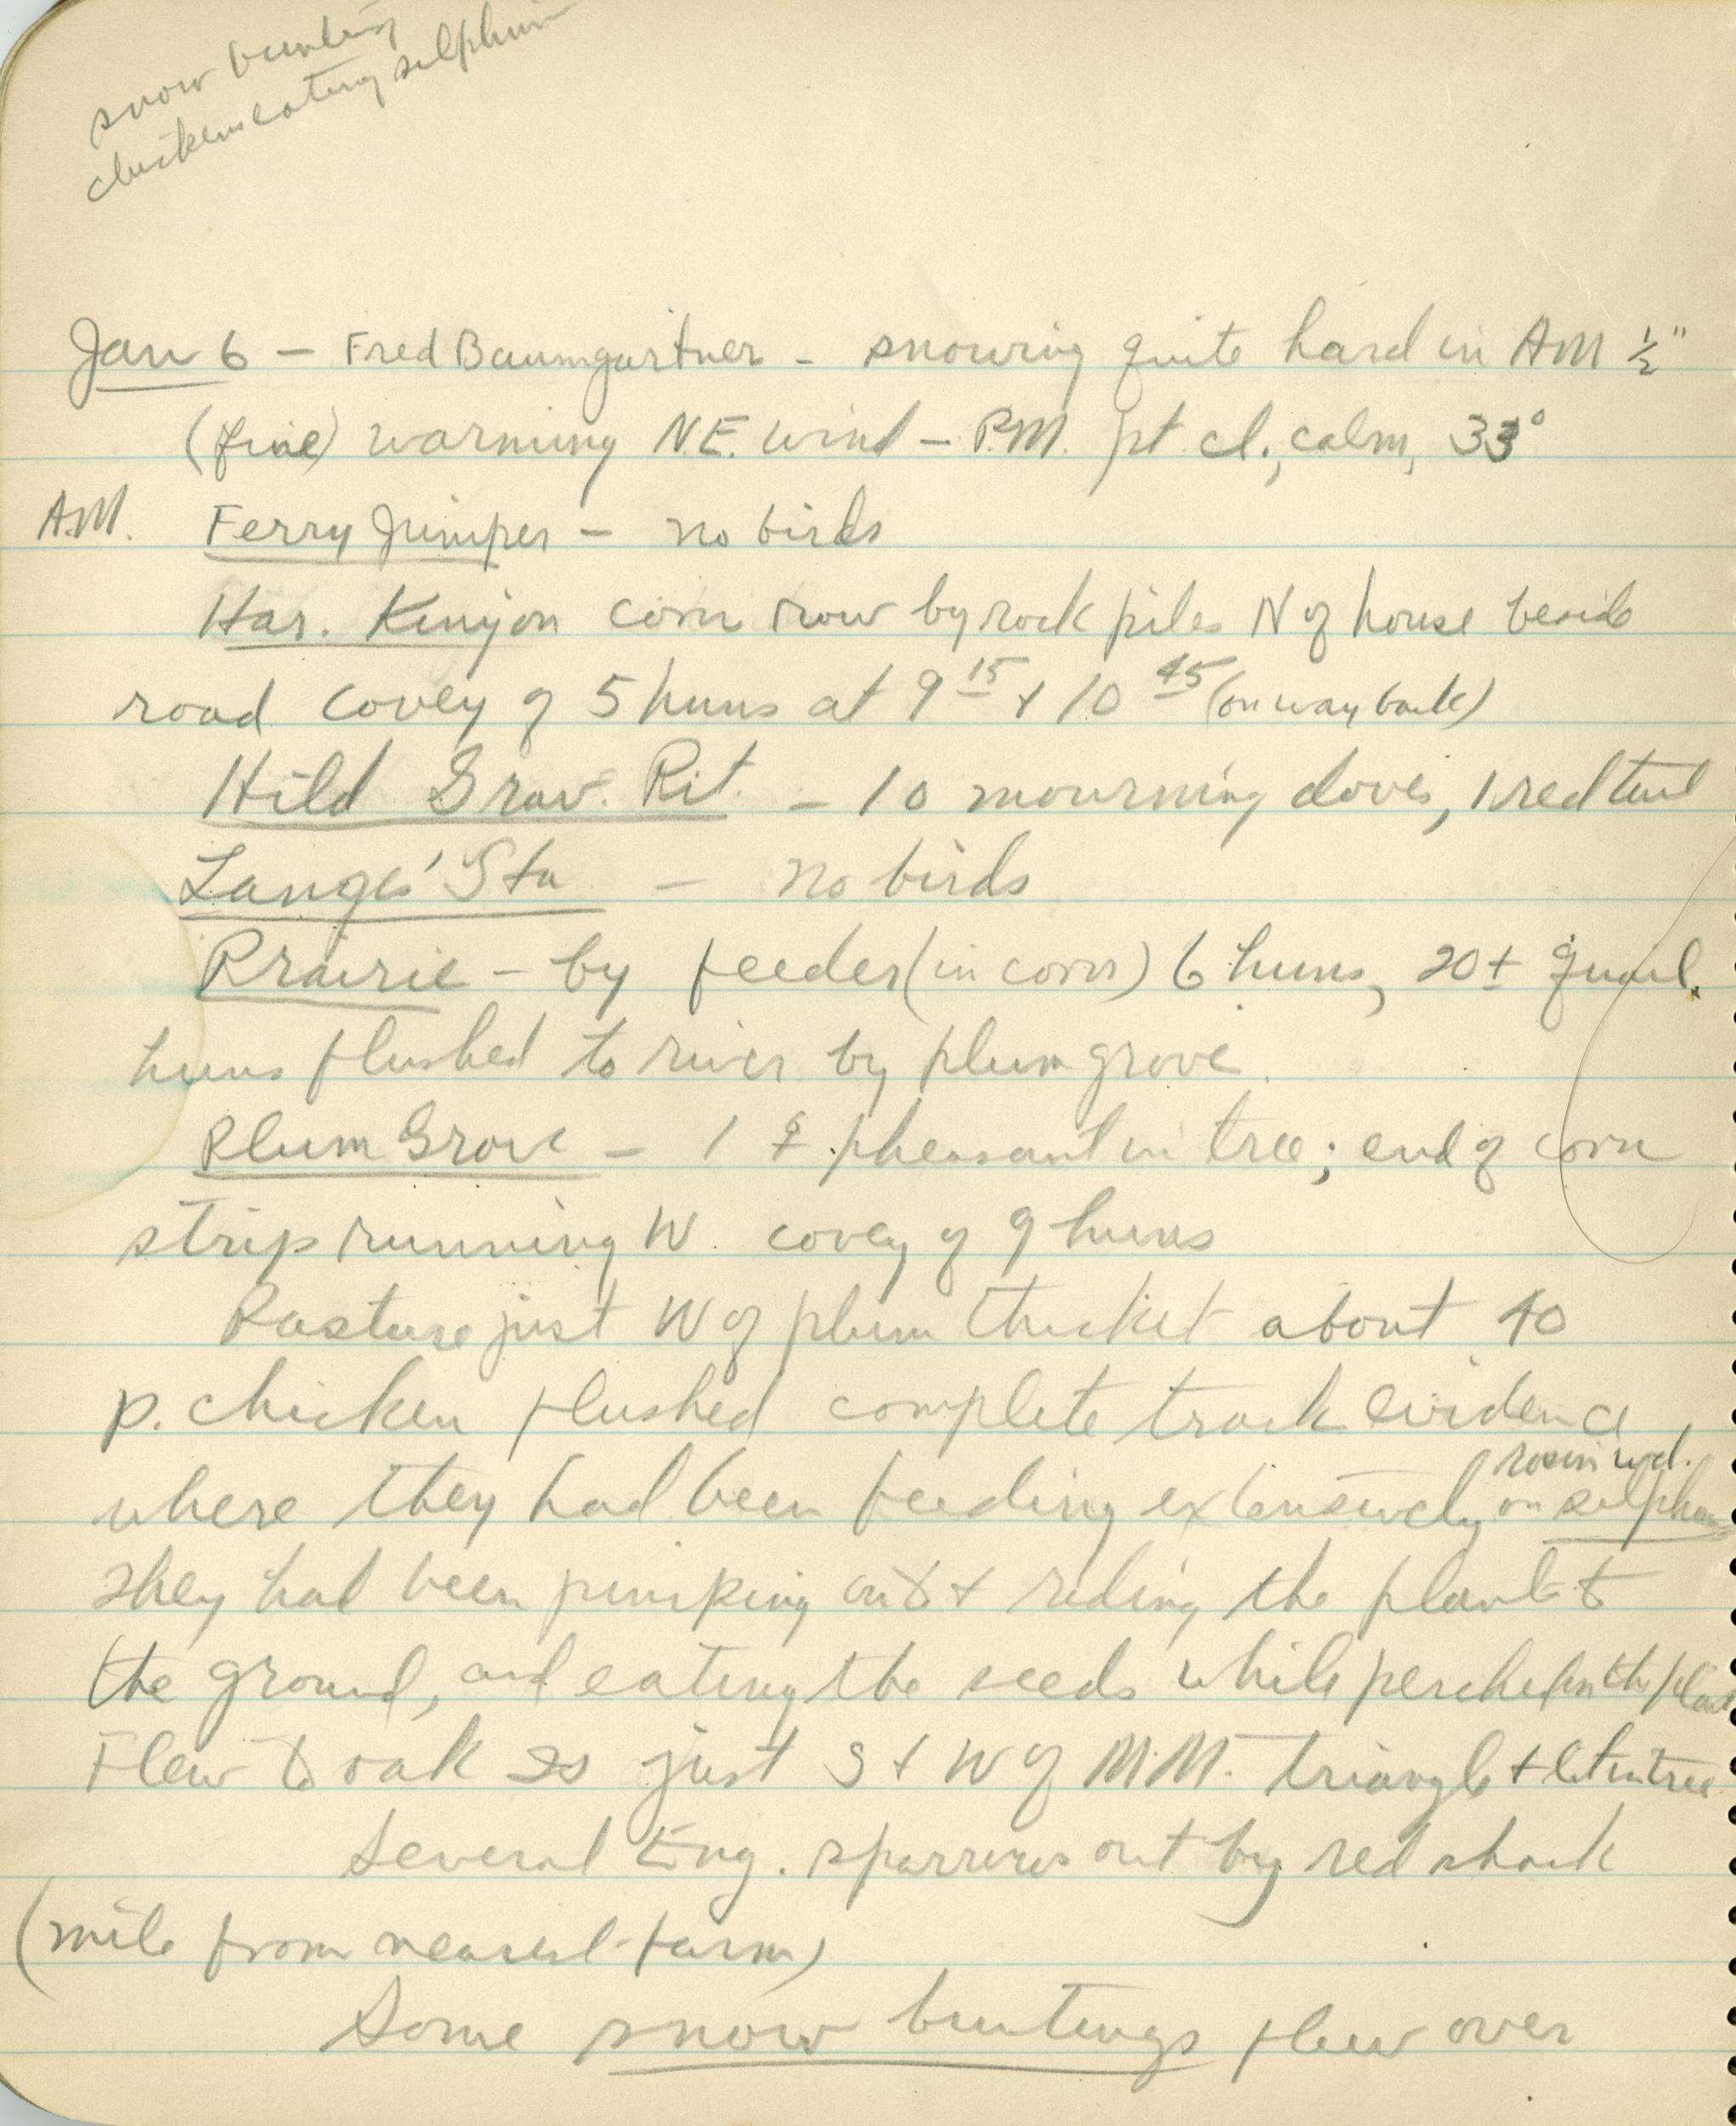 snow bunting
chickens eating silphium
Jan 6 – Fred Baumgartner – snowing quite hard in AM ½"
(fine) warming N.E. wind – P.M. pt cl., calm, 33°
A.M. Ferry Juniper – no birds
Har. Kenyon corn row by rock piles N of house beside
road covey of 5 huns at 9 15 + 10 45 (on way back)
Hild Grav. Pit. – 10 mourning doves, 1 redtail
Langes' Sta – no birds
Prairie – by feeder (in corn) 6 huns, 20± quail.
huns flushed to river by plum grove.
Plum Grove – 1 ♀ pheasant in tree; end of corn
strip running W. covey of 9 huns
Pasture just W of plum thicket about 40
p. chicken flushed complete track evidence
rosin wd.
where they had been feeding extensively on silphium
They had been jumping on & riding the plant to
the ground, and eating the seeds while perched on the plant
Flew to oak just S + W of M.M. triangle + lit in tree
Several Eng. sparrows out by red shack
(mile from nearest farm)
Some snow buntings flew over